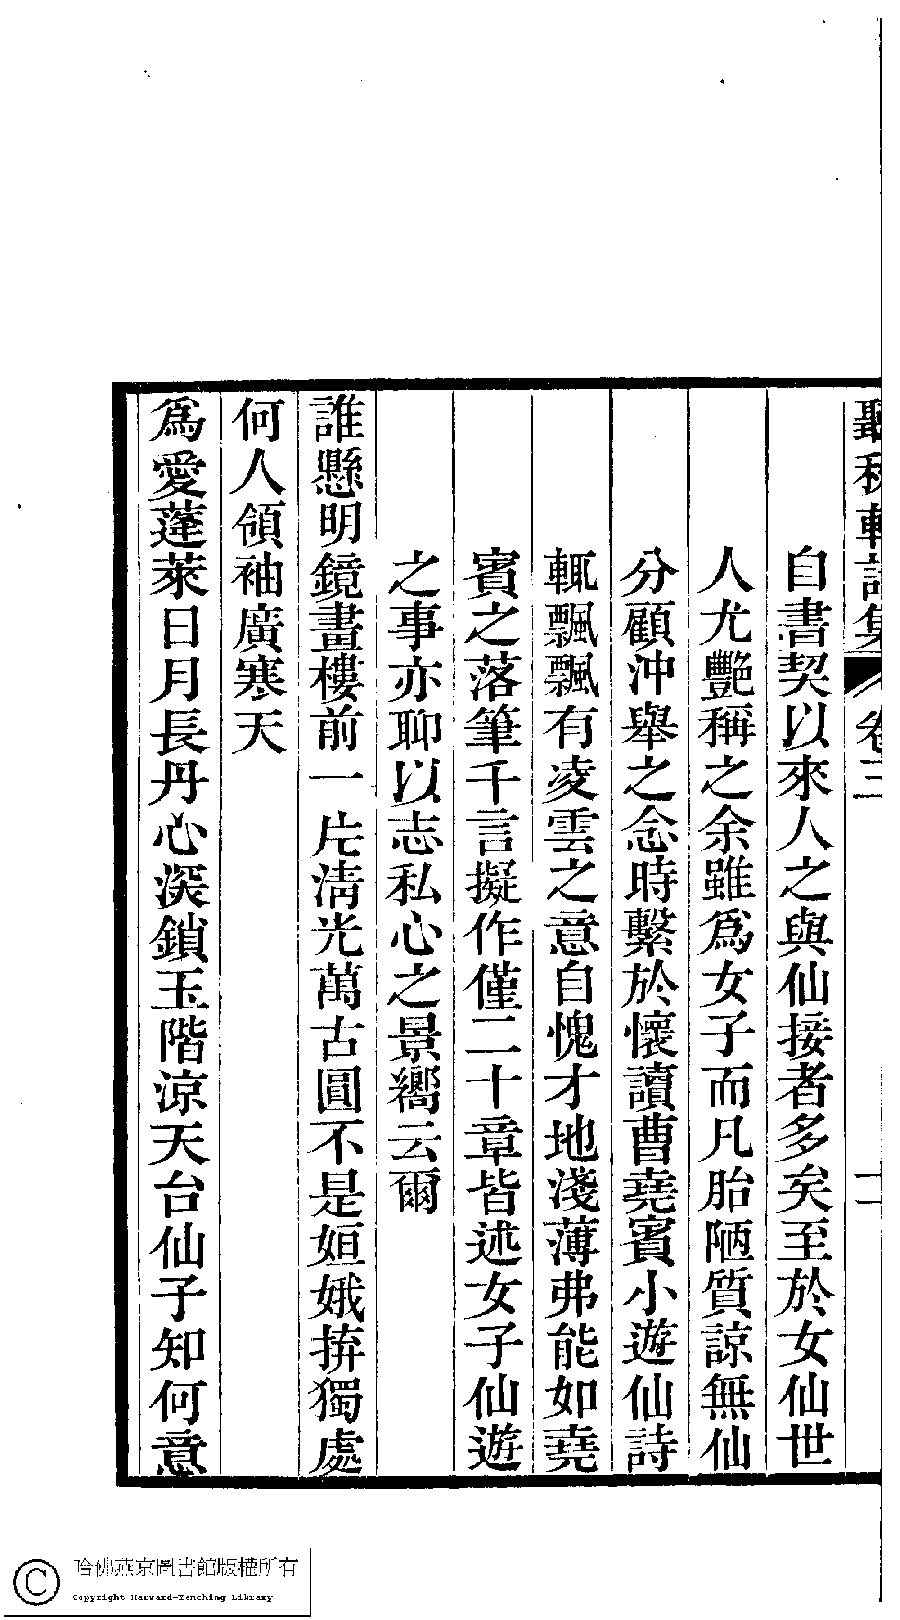 聽秋軒詩集 卷三 二
自書契以來人之與仙接者多矣至於女仙世
人尤艷稱之余雖爲女子而凡胎陋質諒無仙
分顧沖舉之念時繫於懷讀曹堯賓小遊仙詩
輒飄飄有凌雲之意自愧才地淺薄弗能如堯
賓之落筆千言擬作僅二十章皆述女子仙遊
之事亦聊以志私心之景嚮云爾
誰懸明鏡畫樓前一片淸光萬古圓不是姮娥拚獨處
何人領袖廣寒天
爲愛蓬萊日月長丹心深鎖玉階涼天台仙子知何意
哈佛燕京圖書館版權所有
Copyright Harvard-Yenching Library